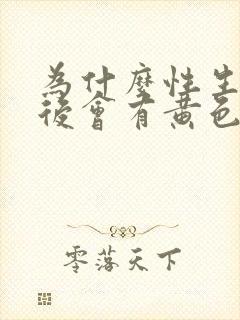 為什麼性生
後會有黃色
零落天下